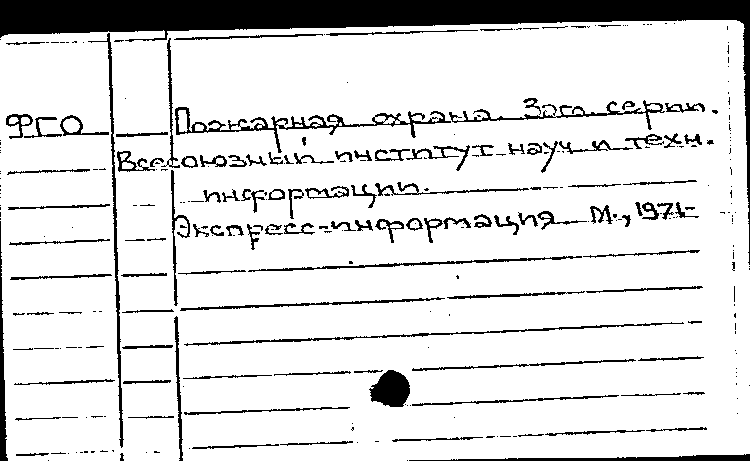 ФГО Пожарная охрана. Загл. серии.
Всесоюзный институт науч и техн.
информации.
Экспресс-информация М., 1971-